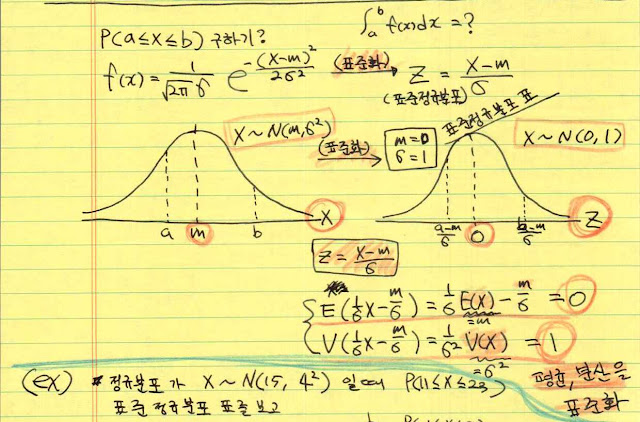 P(a≤X≤b) 구하기?
∫ₐᵇ f(x)dx = ?
f(x) = 1/(√2π σ) e^(-(X-m)²/2σ²) (표준화) → Z = (X-m)/σ
(표준정규분포)
표준정규분포 표
X~N(m,σ²)
(표준화) →
m=0
σ=1
X~N(0,1)
a m b X
(a-m)/σ 0 (b-m)/σ Z
Z = (X-m)/σ
E(1/σ X - m/σ) = 1/σ E(X) - m/σ = 0
=m
V(1/σ X - m/σ) = 1/σ² V(X) = 1
=σ²
(ex) 정규분포가 X~N(15, 4²) 일 때 P(11≤X≤23)
표준 정규분포 표를 보고
평균, 분산을
표준화